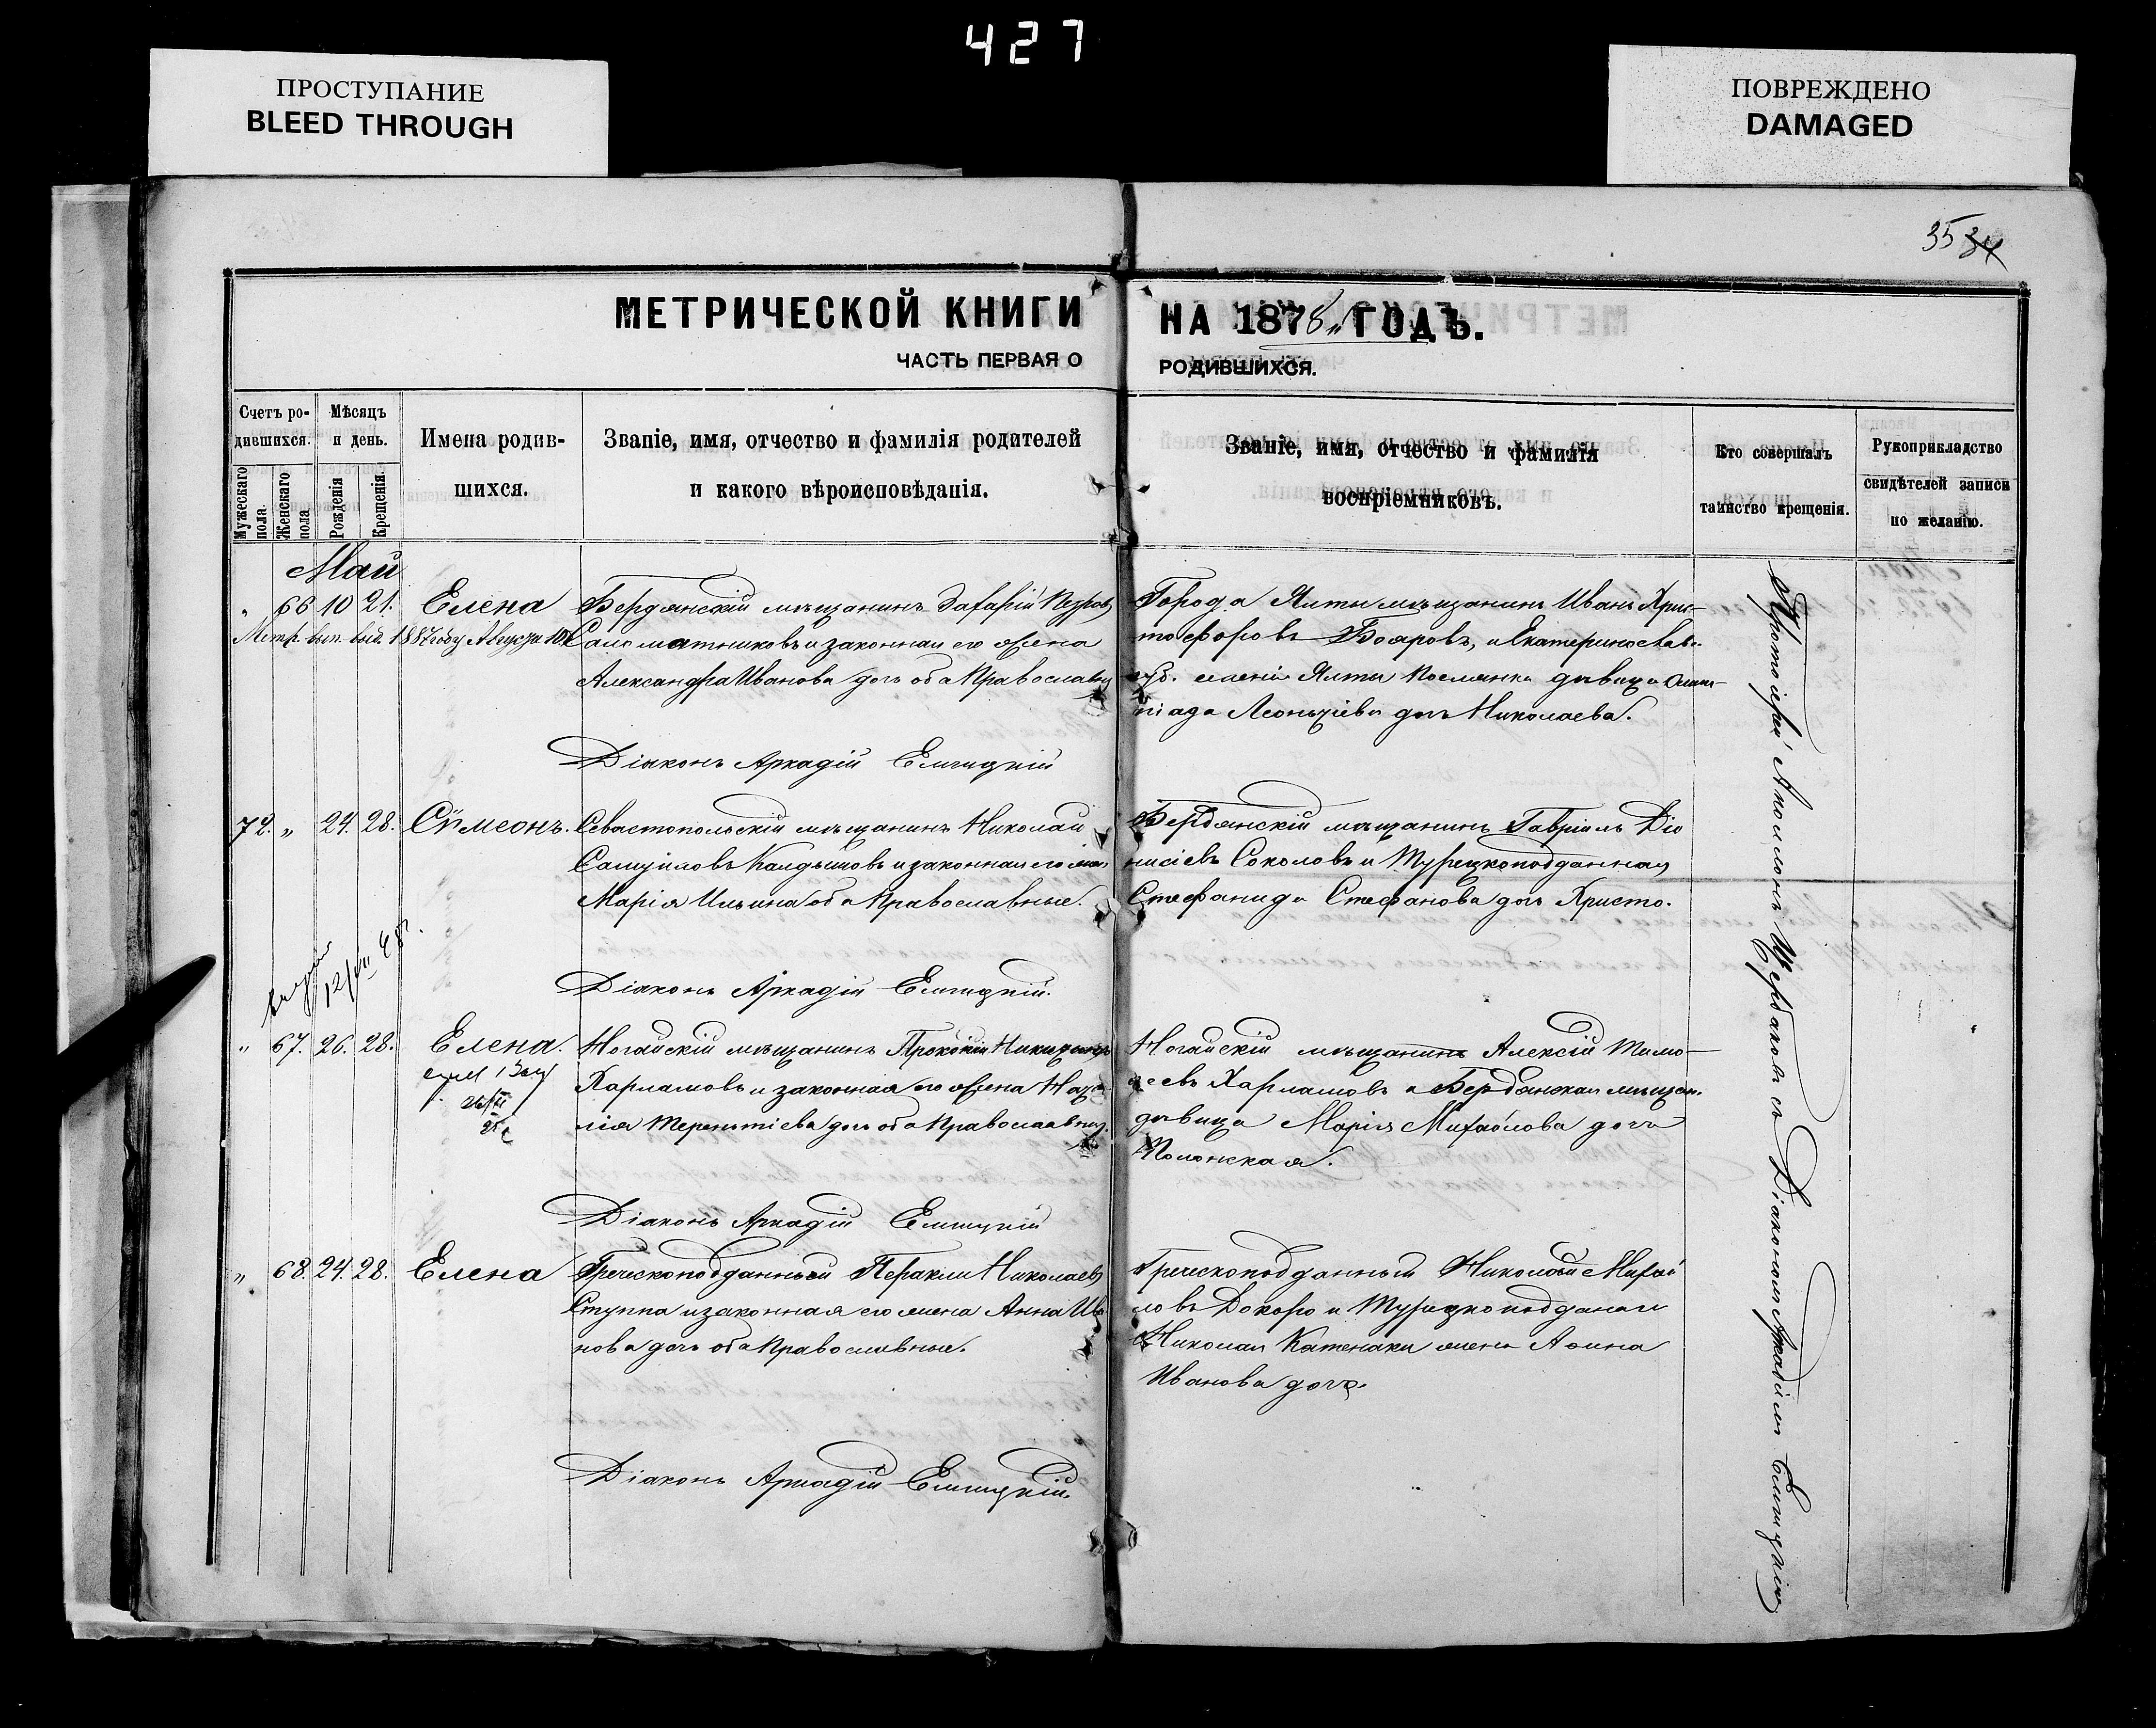 427
ПРОСТУПАНИЕ
BLEED THROUGH
ПОВРЕЖДЕНО
DAMAGED
35 34
МЕТРИЧЕСКОЙ КНИГИ НА 1878 ГОДЪ.
ЧАСТЬ ПЕРВАЯ О РОДИВШИХСЯ.
Счетъ ро-
дившихся.
Мужескаго пола.
Женскаго пола
Мѣсяцъ
и день.
Рожденія
Крещенія.
Имена родив-
шихся.
Званіе, имя, отчество и фамилія родителей
и какого вѣроисповѣданія.
Званіе, имя, отчество и фамилія
воспріемниковъ.
Кто совершалъ
таинство крещенія.
Рукоприкладство
свидѣтелей записи
по желанію.
Май
„ 66 10 21. Елена
Метр. вып. выд. 1887 году Августа 10
Бердянскій мѣщанинъ Захарій Петровъ
Саломатниковъ и законная его жена
Александра Иванова дочь оба Православны
Города Ялты мѣщанинъ Иванъ Хрис-
тофоровъ Бояровъ, и Екатеринослав.
губ. Ялты поселянка дѣвица Олим-
піада Леонтіева дочь Николаева.
Діаконъ Аркадій Елницкій
72. „ 24. 28. Сѵмеонъ.
Севастопольскій мѣщанинъ Николай
Самуиловъ Калдышовъ и законная его жена
Марія Ильина оба Православные.
Бердянскій мѣщанинъ Гавріилъ Діо
нисіевъ Соколовъ и Турецкоподданная
Стефанида Стефанова дочь Христо.
Діаконъ Аркадій Елницкій.
„ 67. 26. 28. Елена.
Ногайскій мѣщанинъ Прокопій Никитинъ
Харламовъ и законная его жена Ната
лія Терентіева дочь оба Православны.
Ногайскій мѣщанинъ Алексій Тимо-
ѳеевъ Харламовъ и Бердянская мѣщан.
дѣвица Марія Михайлова дочь
Полонская.
Діаконъ Аркадій Елницкій
„ 68. 24. 28. Елена
Греческоподданный Перакли Николаевъ
Ступпа и законная его жена Анна Ива
нова дочь оба Православные.
Греческоподданный Николай Михай
ловъ Докоро и Турецкоподданаго
Николая Катенаки жена Анна
Иванова дочь.
Діаконъ Аркадій Елницкій.
Протоіерей Аполлонъ Щербаковъ съ Діакономъ Аркадіемъ Елницкимъ